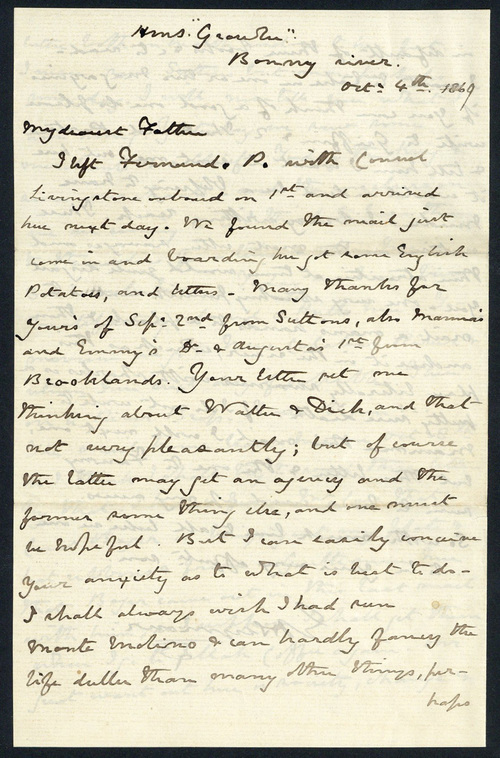 HMS "Growler".
Bonny river.
Octr 4th 1869
My dearest Father
I left Fernando Po with Consul
Livingstone onboard on 1st and arrived
here next day. We found the mail just
come in and boarding her got some English
Potatoes, and letters - Many thanks for
yours of Sept 2nd from Suttons, also Mama's
and Emmy's Do & Augusta's 1st from
Brooklands. Your letter set me
thinking about Walter & Dick, and that
not very pleasantly; but of course
the latter may get an agency and the
former some thing else, and one must
be hopeful. But I can easily conceive
your anxiety as to what is best to do -
I shall always wish I had seen
Monte Molino & can hardly fancy the
life duller than many other things, per-
haps